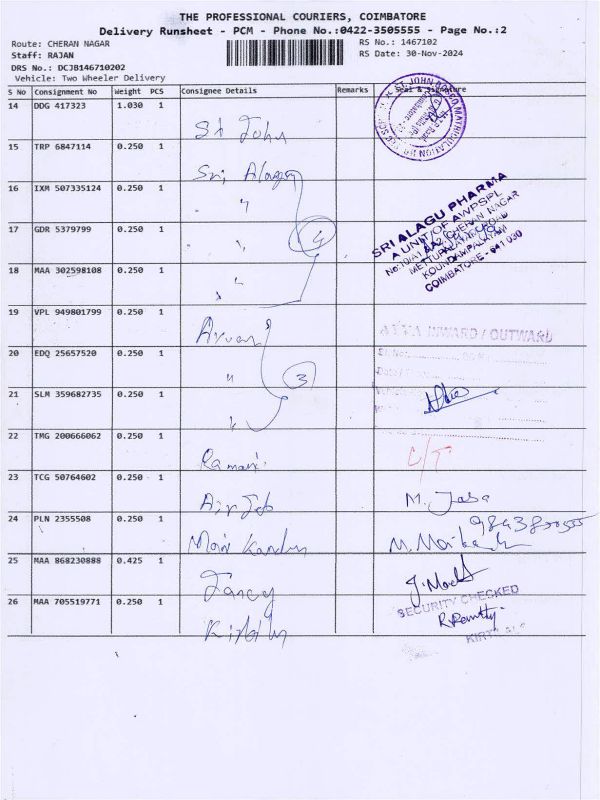 THE PROFESSIONAL COURIERS, COIMBATORE
Delivery Runsheet - PCM - Phone No.:0422-3505555 - Page No.:2
Route: CHERAN NAGAR
RS No.: 1467102
Staff: RAJAN
RS Date: 30-Nov-2024
DRS No.: DCJB146710202
Vehicle: Two Wheeler Delivery
S No Consignment No Weight PCS Consignee Details Remarks Seal & Signature
14 DDG 417323 1.030 1 St John
15 TRP 6847114 0.250 1 Sri Alagu
16 IXM 507335124 0.250 1 "
17 GDR 5379799 0.250 1 " 4
18 MAA 302598108 0.250 1 "
SRI ALAGU PHARMA
A UNIT OF AWPSPL
CHERAN NAGAR
METTUPALAYAM ROAD
KOUNDAMPALAYAM
COIMBATORE - 641 030
19 VPL 949801799 0.250 1
INWARD / OUTWARD
20 EDQ 25657520 0.250 1 " 3
21 SLM 359682735 0.250 1 "
22 TMG 200666062 0.250 1 Ramani C/T
23 TCG 50764602 0.250 1 M. Jaba
24 PLN 2355508 0.250 1 Mani Kandan
25 MAA 868230888 0.425 1 Fancy
SECURITY CHECKED
26 MAA 705519771 0.250 1